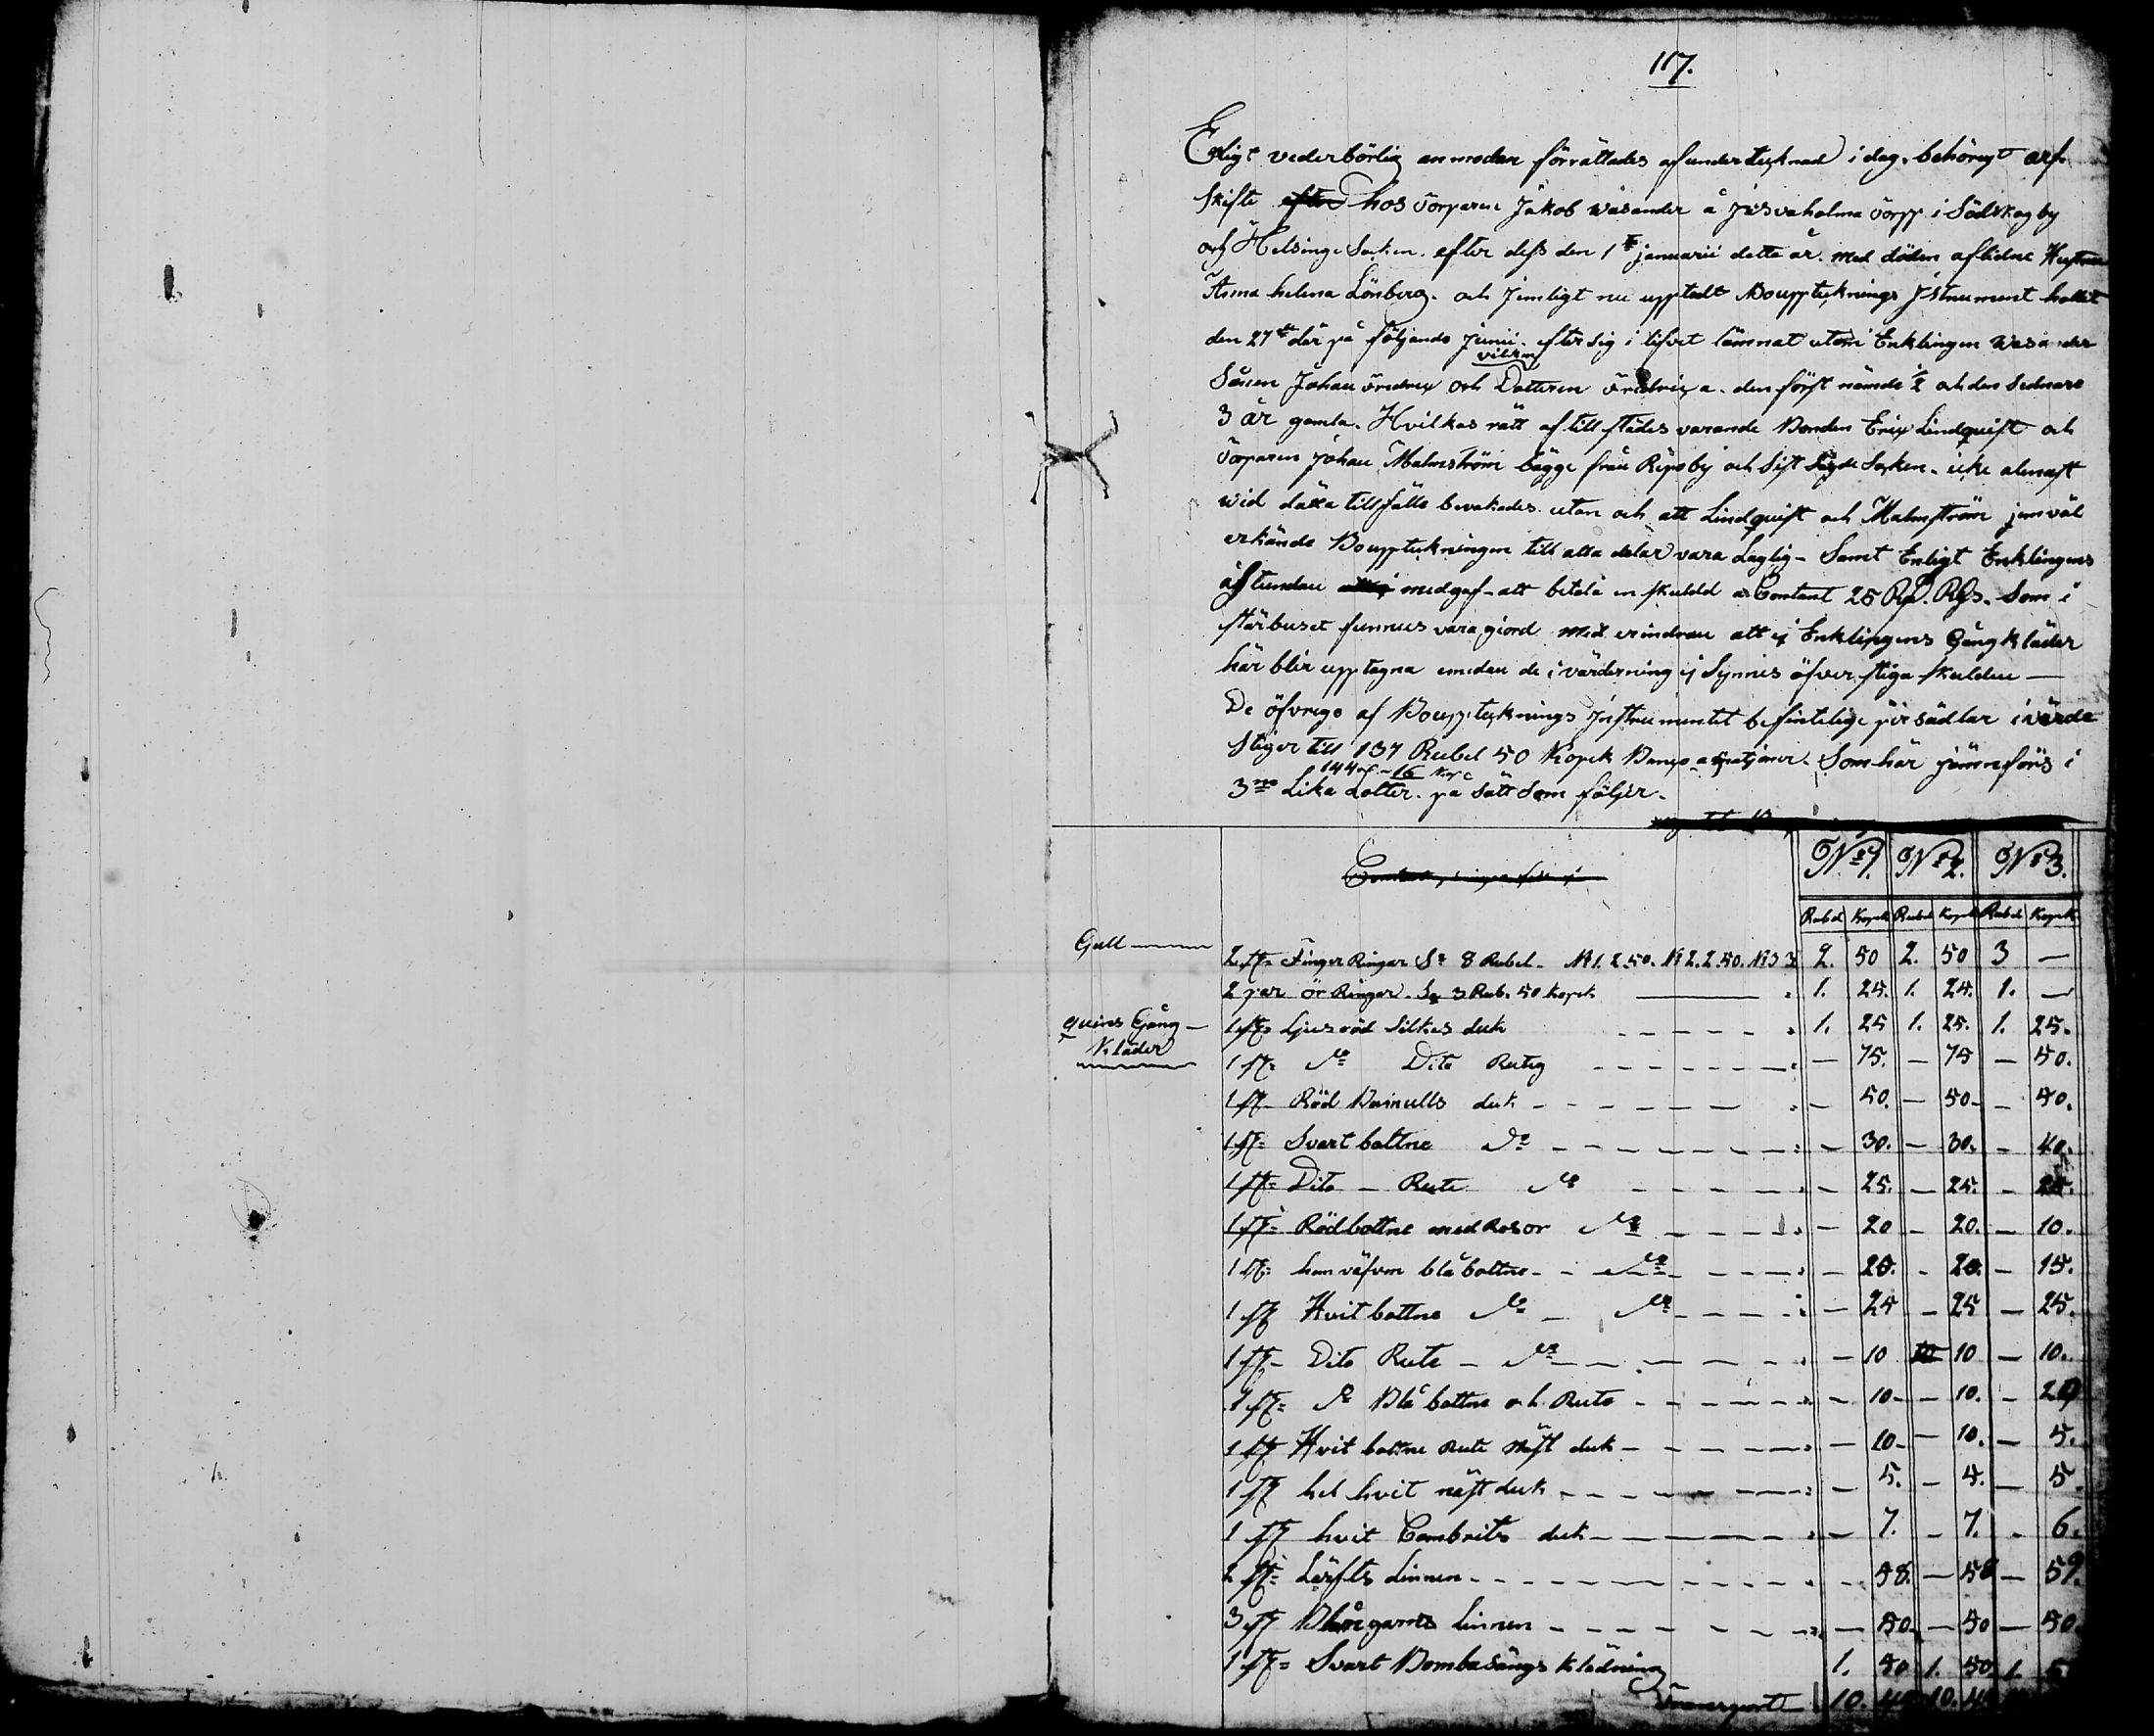 117.
Enligt vederbörlig anmodan förrättades af undertecknad i dag. behörigt arf
skifte efter hos Torparen Jakob Wasander å Torpp i Södskog by
och Helsinge Socken. efter dess den 1ta januarii detta år. med döden aflidne Hustru
Anna helena Lönberg. och jemligt nu upptedt Bouppteknings Jstrument hollit
den 27de där på följande Junii. efter sig i lifvet lämnat utom Enklingen Wasander
vilhm
Sånen Johan och Dotteren den först nämde 1/2 och den sednare
3 år gamla. Hvilkas rätt af tillstädes varande Bonden Eric Lindquist och
Torparen Johan Malmström bägge från Ripsby och Sist Sagde Socken. icke alenast
wid detta tillfälle bevakades. utan och att Lindquist och Malmström jemväl
erkände Bouppteckningen till alla delar vara Laglig - Samt Enligt Enklingens
åstundan medgaf - att betala en skulld a Contant 25 Rub. Rgs. Som i
stärbuset funnes vara giord med erindran att ej Enklingens Gångkläder
här blir upptagna emedan de i värderning ej Synnes öfver stiga skulden —
De öfvrige af Bouptecknings Jnstrumentet befintelige persädlar i värde
Stiger till 137 Rubel 50 Kopek Banco asignatjoner. Som här jämnförs i
144 16 kop
3ne Lika Lotter. på sätt Som följer.
No 1. No 2. No 3.
Rubel Kopek Rubel Kopek Rubel Kopek
Gull 2 st= Finger Ringar Sa 8 Rubel. N1. 2.50. N2. 2.50. N3 3 2. 50 2. 50 3 —
2 par ör Ringar. Sa 3 Rub. 50 Kopek 1. 25. 1. 25. 1. —
quins Gång- 1 st= Ljusröd Silkes duk 1. 25 1. 25. 1. 25.
Kläder
1 st= do Dito Rutig — 75. — 75 — 50.
1 st- Röd Bomulls duk — 50. — 50 — 50.
1 st= Svart bottne do — 30. — 30. — 40.
1 st= Dito — Rute do — 25. — 25. — 25.
1 st= Rödbottne med Rosor do — 20 — 20. — 10.
1 st= hemväfven blåbottne do — 20. — 20. — 15.
1 st Hvit bottne do — do — 25 — 25 — 25.
1 st- Dito Rute — do — 10 10 — 10.
1 st= do Blå bottne och Rute — 10 — 10. — 20
1 st Hvit bottne Rute Näst duk — 10 — 10. — 5.
1 st hel hvit näst duk — 5. — 5. — 5.
1 st hvit Cambrits duk — 7. — 7. — 6.
2 st= Lärfts Linnen — 58. — 58 — 59.
3 st Blårgarns Linnen — 50. — 50 — 50.
1 st= Svart Bombasängs Klädning 1. 50 1. 50 1.
Transport 10. 10.